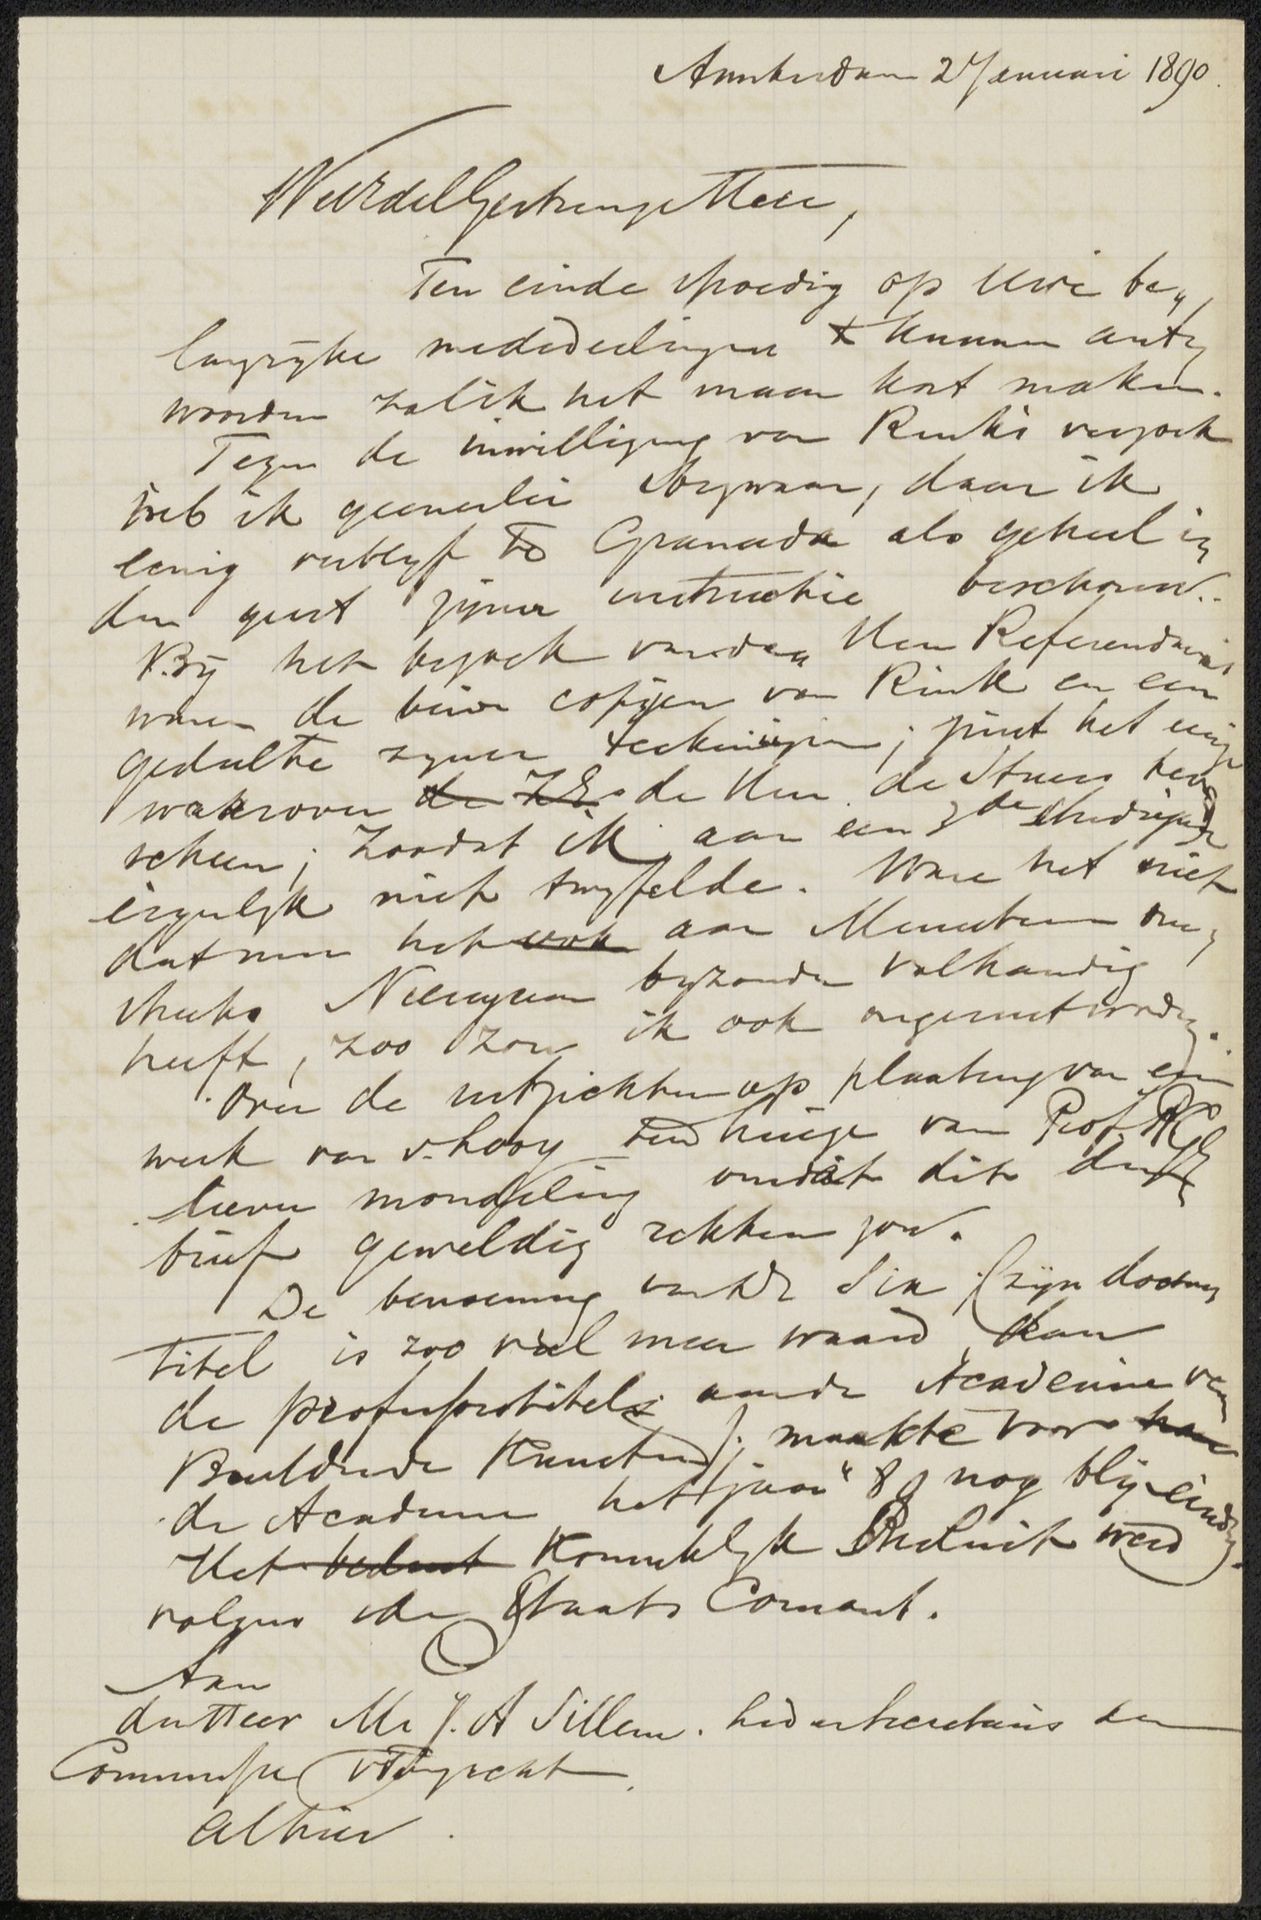 Amsterdam 2 Januari 1890.
WelEdelGestrenge Heer,
Ten einde spoedig op Uwe be„
langrijke mededeelingen te kunnen ant„
woorden zal ik het maar kort maken.
Tegen de inwilliging van Rink's verzoek
heb ik geenerlei bezwaar, daar ik
eenig verblijf te Granada als geheel in
den geest zijner instructie beschouw.
Bij het bezoek van den Heer Referendaris
waren de beide copijen van Rink en een
gedeelte zijner teekeningen; juist het eenige
waarover de ZE. de Heer de Stuers tevreden
scheen; zoodat ik aan een 3de studiejaar
eigenlijk niet twijfelde. Ware het niet
dat men het ook aan Ministerie
bijzonder volhandig
heeft, zoo zou ik ook ongerust worden.
Over de uitzichten op plaatsing van een
werk van v. Looy ten huize van Prof.
liever mondeling omdat dit den
brief geweldig rekken zou.
De benoeming van Dr Six (zijn doctors
titel is zoo veel meer waard dan
de professortitel aan de Academie van
Beeldende Kunsten); maakte voor
de Academie het jaar 89 nog blij eindig.
Het besluit Koninklijk Besluit werd
volgens de Staats Courant.
Aan
den Heer Mr J. A Sillem. Lid en Secretaris der
Commissie v Toezicht.
alhier.